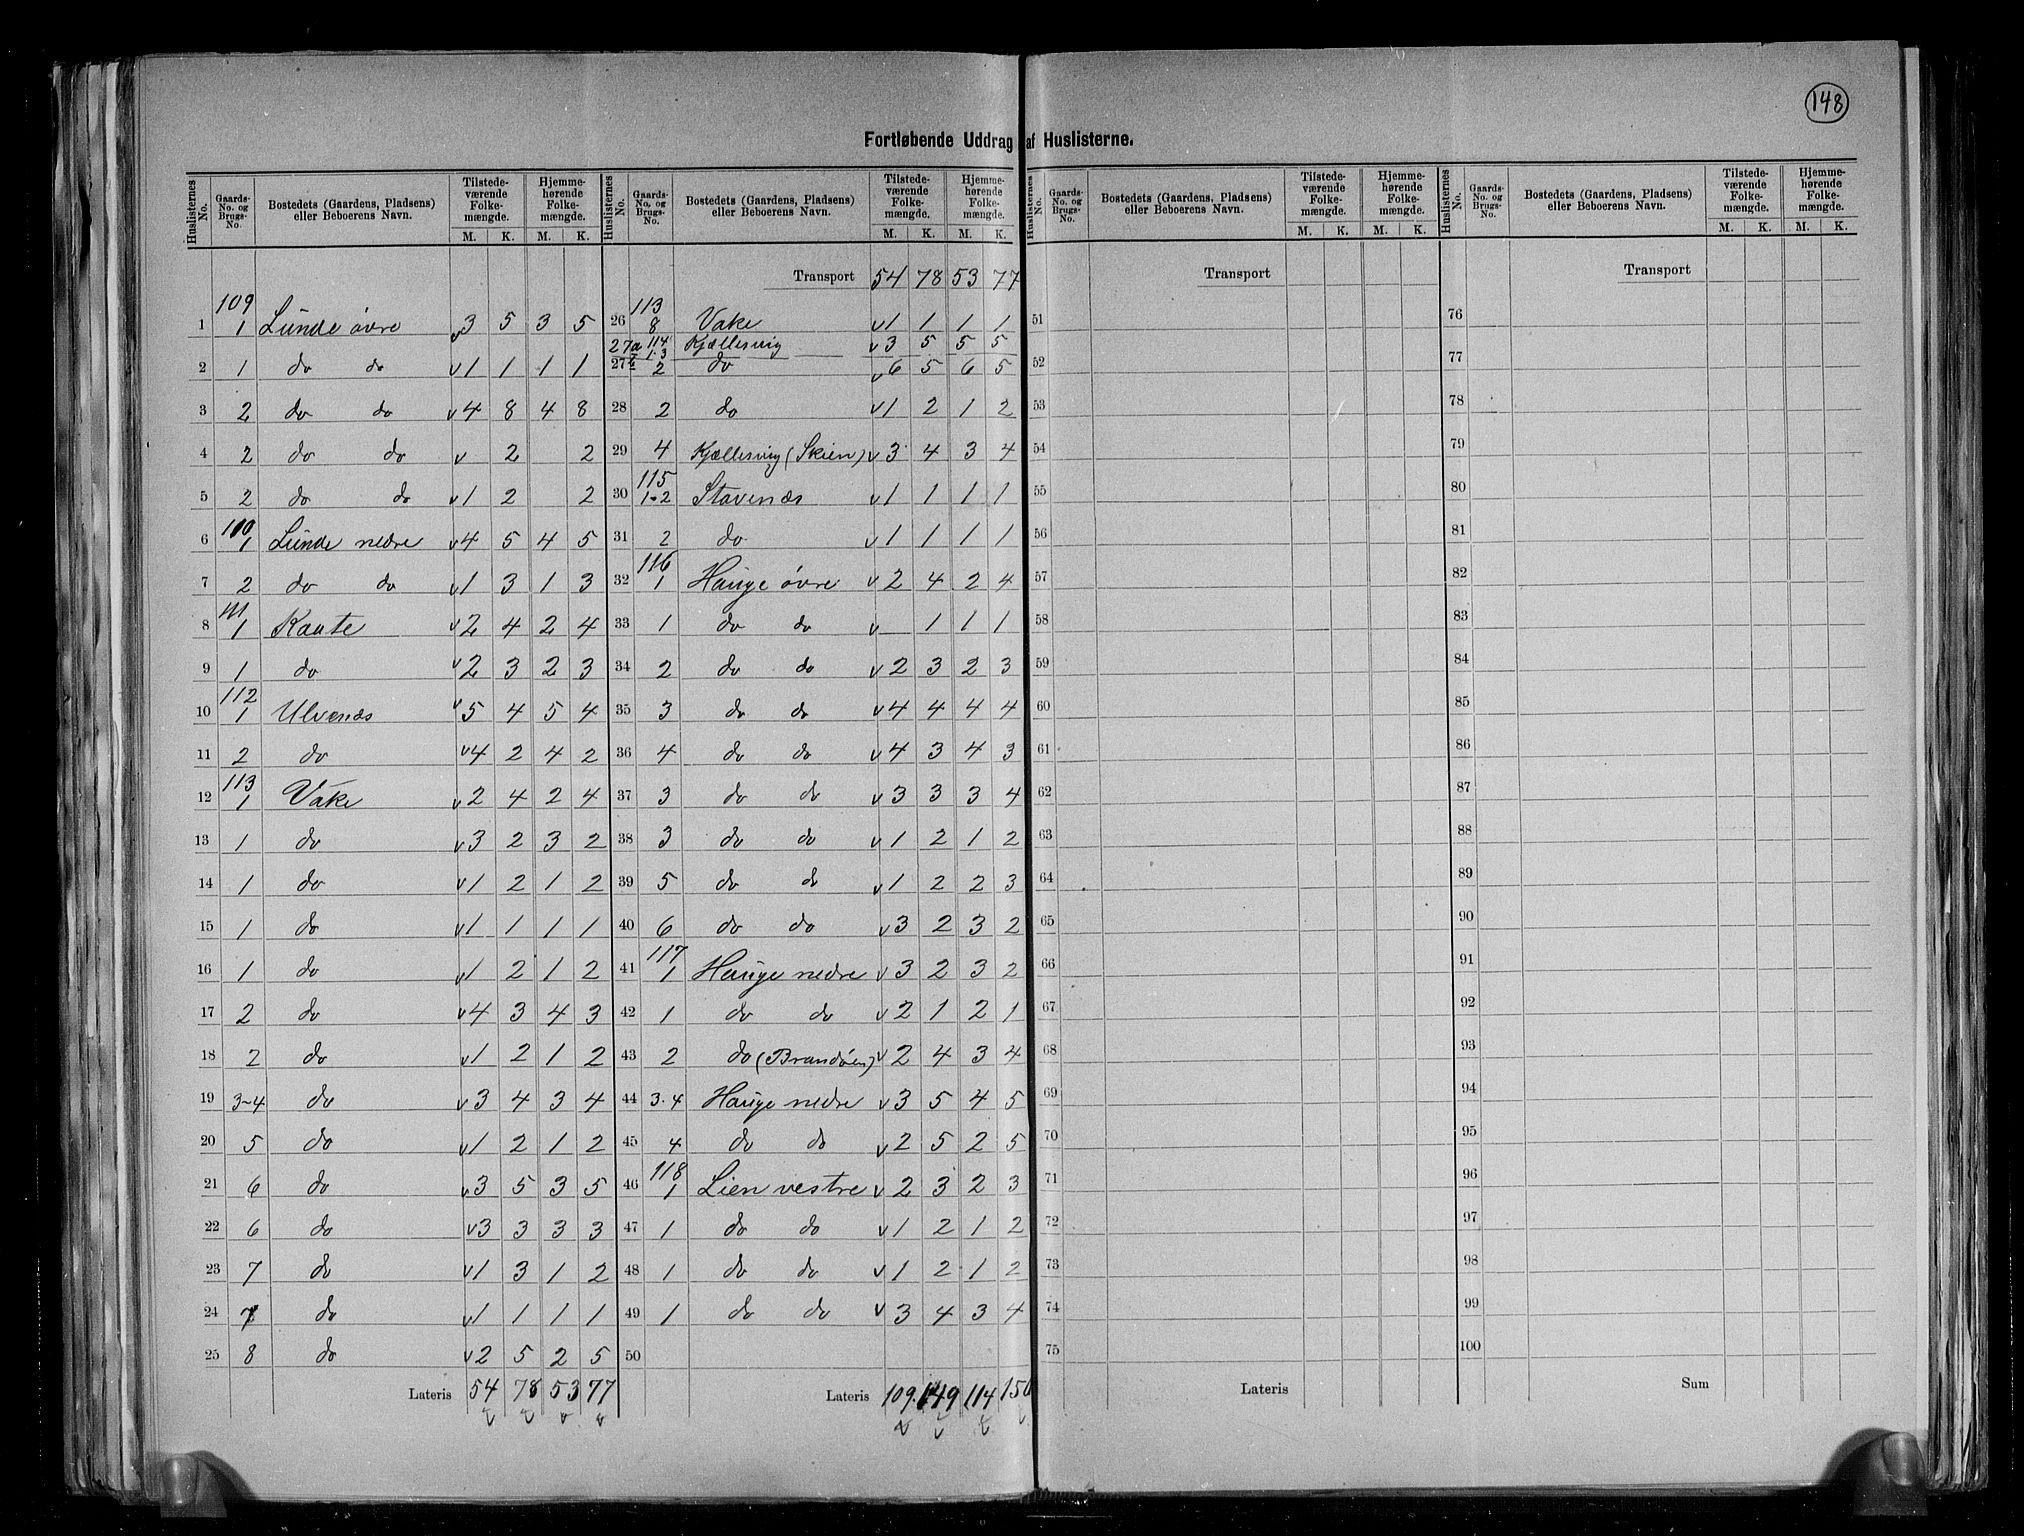 148
Fortløbende Uddrag af Huslisterne.
Huslisternes No. | Gaards-No. og Brugs-No. | Bostedets (Gaardens, Pladsens) eller Beboerens Navn. | Tilstedeværende Folkemængde. M. K. | Hjemmehørende Folkemængde. M. K.
109
1 | 1 | Lunde øvre | v3 | 5 | 3 | 5
2 | 1 | do do | v1 | 1 | 1 | 1
3 | 2 | do do | v4 | 8 | 4 | 8
4 | 2 | do do | v | 2 | | 2
5 | 2 | do do | v1 | 2 | | 2
110
6 | 1 | Lunde nedre | v4 | 5 | 4 | 5
7 | 2 | do do | v1 | 3 | 1 | 3
111
8 | 1 | Kaate | v2 | 4 | 2 | 4
9 | 1 | do | v2 | 3 | 2 | 3
112
10 | 1 | Ulvenæs | v5 | 4 | 5 | 4
11 | 2 | do | v4 | 2 | 4 | 2
113
12 | 1 | Vake | v2 | 4 | 2 | 4
13 | 1 | do | v3 | 2 | 3 | 2
14 | 1 | do | v1 | 2 | 1 | 2
15 | 1 | do | v1 | 1 | 1 | 1
16 | 1 | do | v1 | 2 | 1 | 2
17 | 2 | do | v4 | 3 | 4 | 3
18 | 2 | do | v1 | 2 | 1 | 2
19 | 3-4 | do | v3 | 4 | 3 | 4
20 | 5 | do | v1 | 2 | 1 | 2
21 | 6 | do | v3 | 5 | 3 | 5
22 | 6 | do | v3 | 3 | 3 | 3
23 | 7 | do | v1 | 3 | 1 | 2
24 | 7 | do | v1 | 1 | 1 | 1
25 | 8 | do | v2 | 5 | 2 | 5
Lateris | 54 | 78 | 53 | 77
Huslisternes No. | Gaards-No. og Brugs-No. | Bostedets (Gaardens, Pladsens) eller Beboerens Navn. | Tilstedeværende Folkemængde. M. K. | Hjemmehørende Folkemængde. M. K.
Transport | 54 | 78 | 53 | 77
113
26 | 8 | Vake | v1 | 1 | 1 | 1
27a | 114 1.3 | Kjællesvig | v3 | 5 | 5 | 5
27b | 2 | do | v6 | 5 | 6 | 5
28 | 2 | do | v1 | 2 | 1 | 2
29 | 4 | Kjællesvig (Skien) | v3 | 4 | 3 | 4
115
30 | 1-2 | Stavenæs | v1 | 1 | 1 | 1
31 | 2 | do | v1 | 1 | 1 | 1
116
32 | 1 | Hauge øvre | v2 | 4 | 2 | 4
33 | 1 | do do | v | 1 | 1 | 1
34 | 2 | do do | v2 | 3 | 2 | 3
35 | 3 | do do | v4 | 4 | 4 | 4
36 | 4 | do do | v4 | 3 | 4 | 3
37 | 3 | do do | v3 | 3 | 3 | 4
38 | 3 | do do | v1 | 2 | 1 | 2
39 | 5 | do do | v1 | 2 | 2 | 3
40 | 6 | do do | v3 | 2 | 3 | 2
117
41 | 1 | Hauge nedre | v3 | 2 | 3 | 2
42 | 1 | do do | v2 | 1 | 2 | 1
43 | 2 | do (Brandøen) | v2 | 4 | 3 | 4
44 | 3.4 | Hauge nedre | v3 | 5 | 4 | 5
45 | 4 | do do | v2 | 5 | 2 | 5
118
46 | 1 | Lien vestre | v2 | 3 | 2 | 3
47 | 1 | do do | v1 | 2 | 1 | 2
48 | 1 | do do | v1 | 2 | 1 | 2
49 | 1 | do do | v3 | 4 | 3 | 4
50
Lateris | 109. | 149 | 114 | 150
Huslisternes No. | Gaards-No. og Brugs-No. | Bostedets (Gaardens, Pladsens) eller Beboerens Navn. | Tilstedeværende Folkemængde. M. K. | Hjemmehørende Folkemængde. M. K.
Transport
51
52
53
54
55
56
57
58
59
60
61
62
63
64
65
66
67
68
69
70
71
72
73
74
75
Lateris
Huslisternes No. | Gaards-No. og Brugs-No. | Bostedets (Gaardens, Pladsens) eller Beboerens Navn. | Tilstedeværende Folkemængde. M. K. | Hjemmehørende Folkemængde. M. K.
Transport
76
77
78
79
80
81
82
83
84
85
86
87
88
89
90
91
92
93
94
95
96
97
98
99
100
Sum